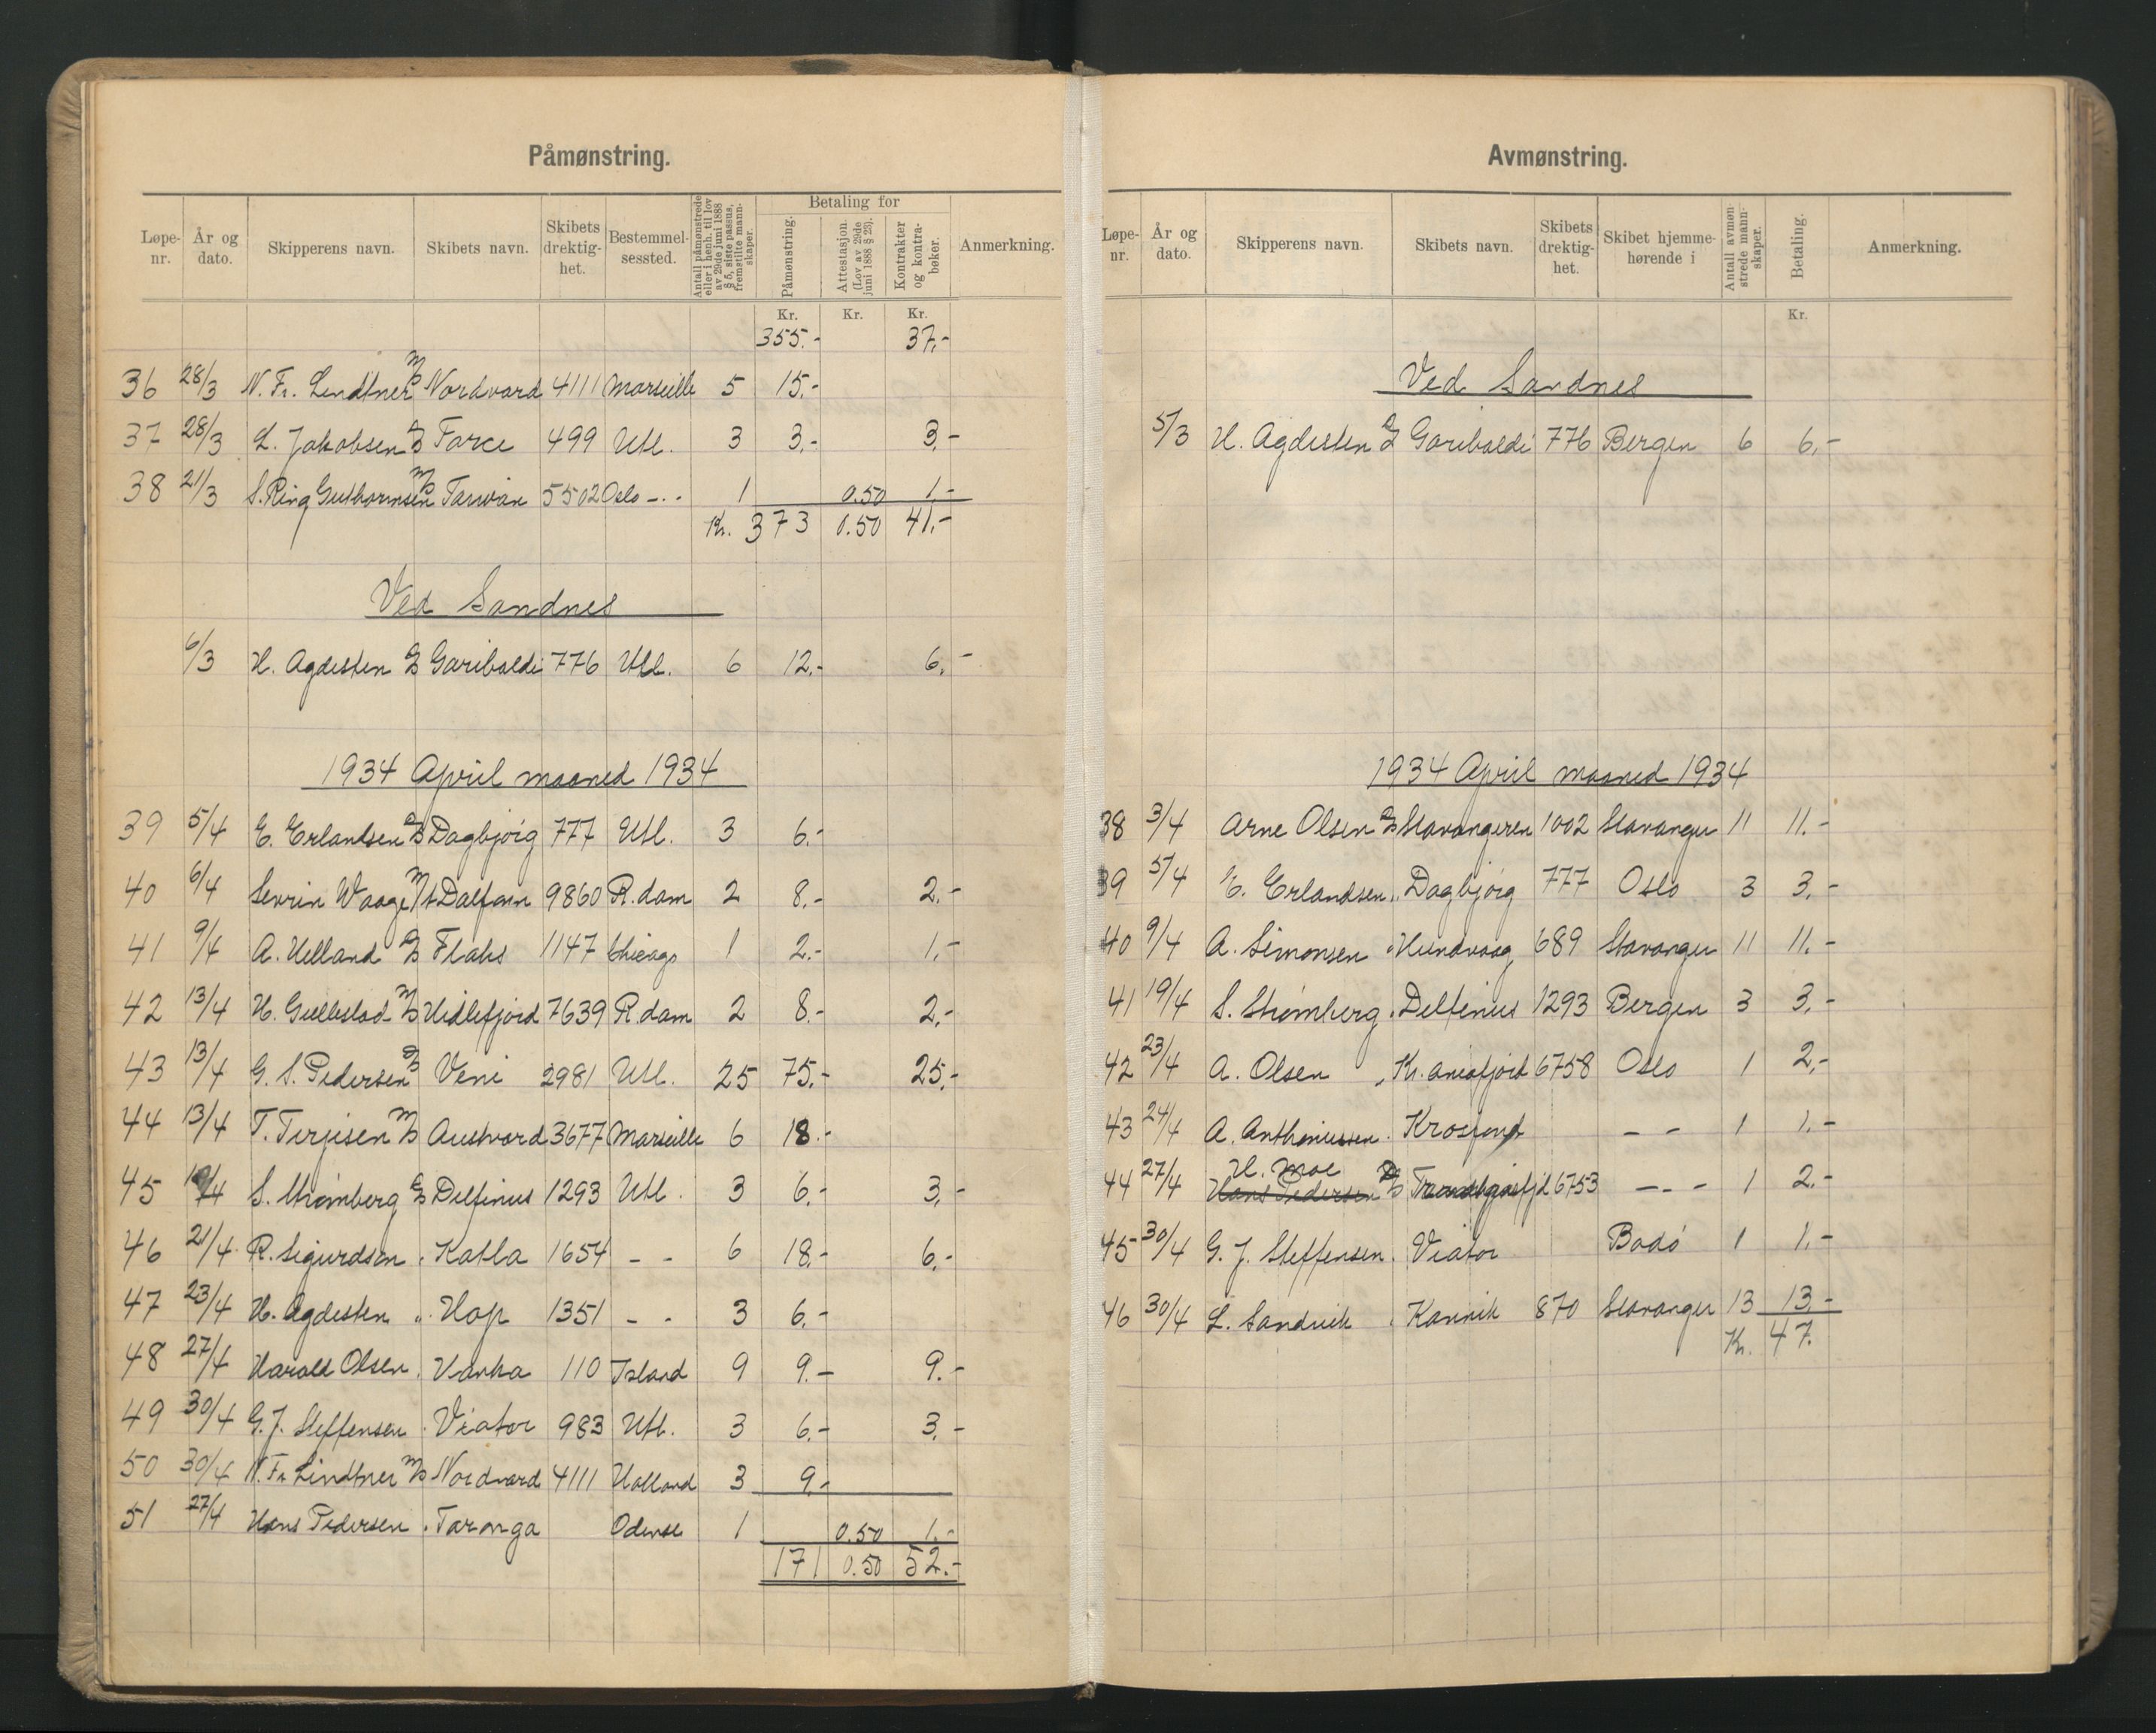 Påmønstring.
Løpe-nr. År og dato. Skipperens navn. Skibets navn. Skibets drektig-het. Bestemmel-sessted. Antall påmønstrede eller i henh. til lov av 29de juni 1888 § 5, siste passus, fremstilte mann-skaper. Betaling for Påmønstring. Attestasjon. (Lov av 29de juni 1888 § 23). Kontrakter og kontra-bøker. Anmerkning.
Kr. Kr. Kr.
355.- 37.-
36 28/3 N. Fr. Lindtner M/S Nordvard 4111 Marseille 5 15.-
37 28/3 L. Jakobsen D/S Farce 499 Utl. 3 3.- 3.-
38 21/3 S. Ring Guthormsen M/S Taiwan 5502 Oslo -.- 1 0.50 1.-
Kr. 373 0.50 41.-
Ved Sandnes
6/3 H. Agdesten D/S Garibaldi 776 Utl. 6 12.- 6.-
1934 April maaned 1934
39 5/4 E. Erlandsen D/S Dagbjørg 777 Utl. 3 6.-
40 6/4 Sevrin Waage M/T Dalfonn 9860 R.dam 2 8.- 2.-
41 9/4 A. Helland D/S Flaks 1147 Chicago 1 2.- 1.-
42 13/4 H. Gullestad M/S Hidlefjord 7639 R.dam 2 8.- 2.-
43 13/4 G. S. Pedersen D/S Veni 2981 Utl. 25 75.- 25.-
44 13/4 T. Terjesen M/S Austvard 3677 Marseille 6 18.-
45 19/4 S. Strømberg D/S Delfinus 1293 Utl. 3 6.- 3.-
46 21/4 R. Sigurdson " Katla 1654 - - 6 18.- 6.-
47 23/4 H. Agdesten " Hop 1351 - - 3 6.-
48 27/4 Harald Olsen " Varka 110 Island 9 9.- 9.-
49 30/4 G. J. Steffensen " Viator 983 Utl. 3 6.- 3.-
50 30/4 N. Fr. Lindtner M/S Nordvard 4111 Holland 3 9.-
51 27/4 Hans Pedersen " Taronga Odense 1 0.50 1.-
171 0.50 52.-
Avmønstring.
Løpe-nr. År og dato. Skipperens navn. Skibets navn. Skibets drektig-het. Skibet hjemme-hørende i Antall avmøn-strede mann-skaper. Betaling. Anmerkning.
Kr.
Ved Sandnes
5/3 H. Agdesten D/S Garibaldi 776 Bergen 6 6.-
1934 April maaned 1934
38 3/4 Arne Olsen D/S Stavangeren 1002 Stavanger 11 11.-
39 5/4 E. Erlandsen " Dagbjørg 777 Oslo 3 3.-
40 9/4 A. Simonsen " Hundvaag 689 Stavanger 11 11.-
41 19/4 S. Strømberg " Delfinus 1293 Bergen 3 3.-
42 23/4 A. Olsen " Kr.aniafjord 6758 Oslo 1 2.-
43 24/4 A. Anthonissen " Krosfond - - 1 1.-
H. Moe
44 27/4 Hans Pedersen D/S 6753 -.- 1 2.-
45 30/4 G. J. Steffensen " Viator Bodö 1 1.-
46 30/4 L. Sandvik " Kannik 870 Stavanger 13 13.-
Kr. 47.